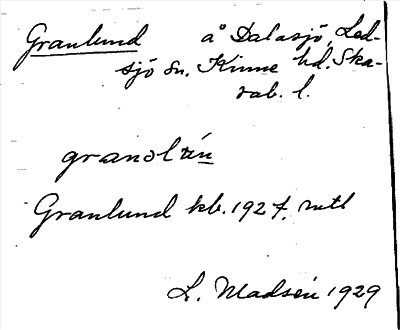 Granlund å Dalasjö, Led-
sjö sn. Kinne hd. Ska-
rab. l.
Granlund kb. 1927,
L. Madsén 1929